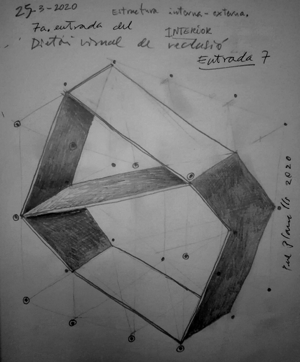 25-3-2020 Estructura interna-externa.
7a. entrada del INTERIOR
Dietari visual de reclusió
Entrada 7
2020